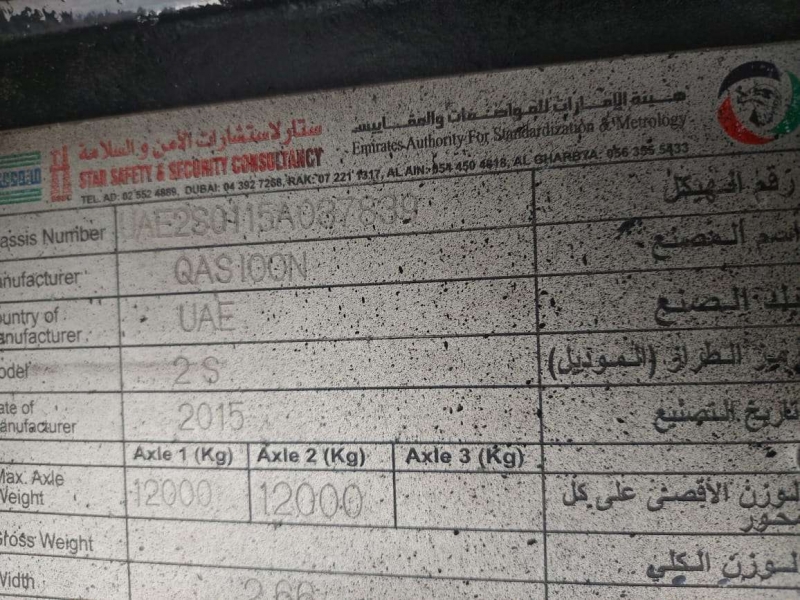 ستار لاستشارات الأمن والسلامة
هيئة الإمارات للمواصفات والمقاييس
STAR SAFETY & SECURITY CONSULTANCY
Emirates Authority For Standardization & Metrology
TEL. AD: 02 552 4869, DUBAI: 04 392 7268, RAK: 07 221 1317, AL AIN: 054 450 4818, AL GHARBZA: 056 395 5433
assis Number UAE2S0115A037839 رقم الهيكل
anufacturer QASIOON اسم المصنع
ountry of
anufacturer UAE بلد الصنع
odel 2 S رمز الطراز (الموديل)
ate of
anufacturer 2015 تاريخ التصنيع
Axle 1 (Kg) Axle 2 (Kg) Axle 3 (Kg)
Max. Axle
Weight 12000 12000 الوزن الأقصى على كل
محور
Gross Weight الوزن الكلي
Width 2.66